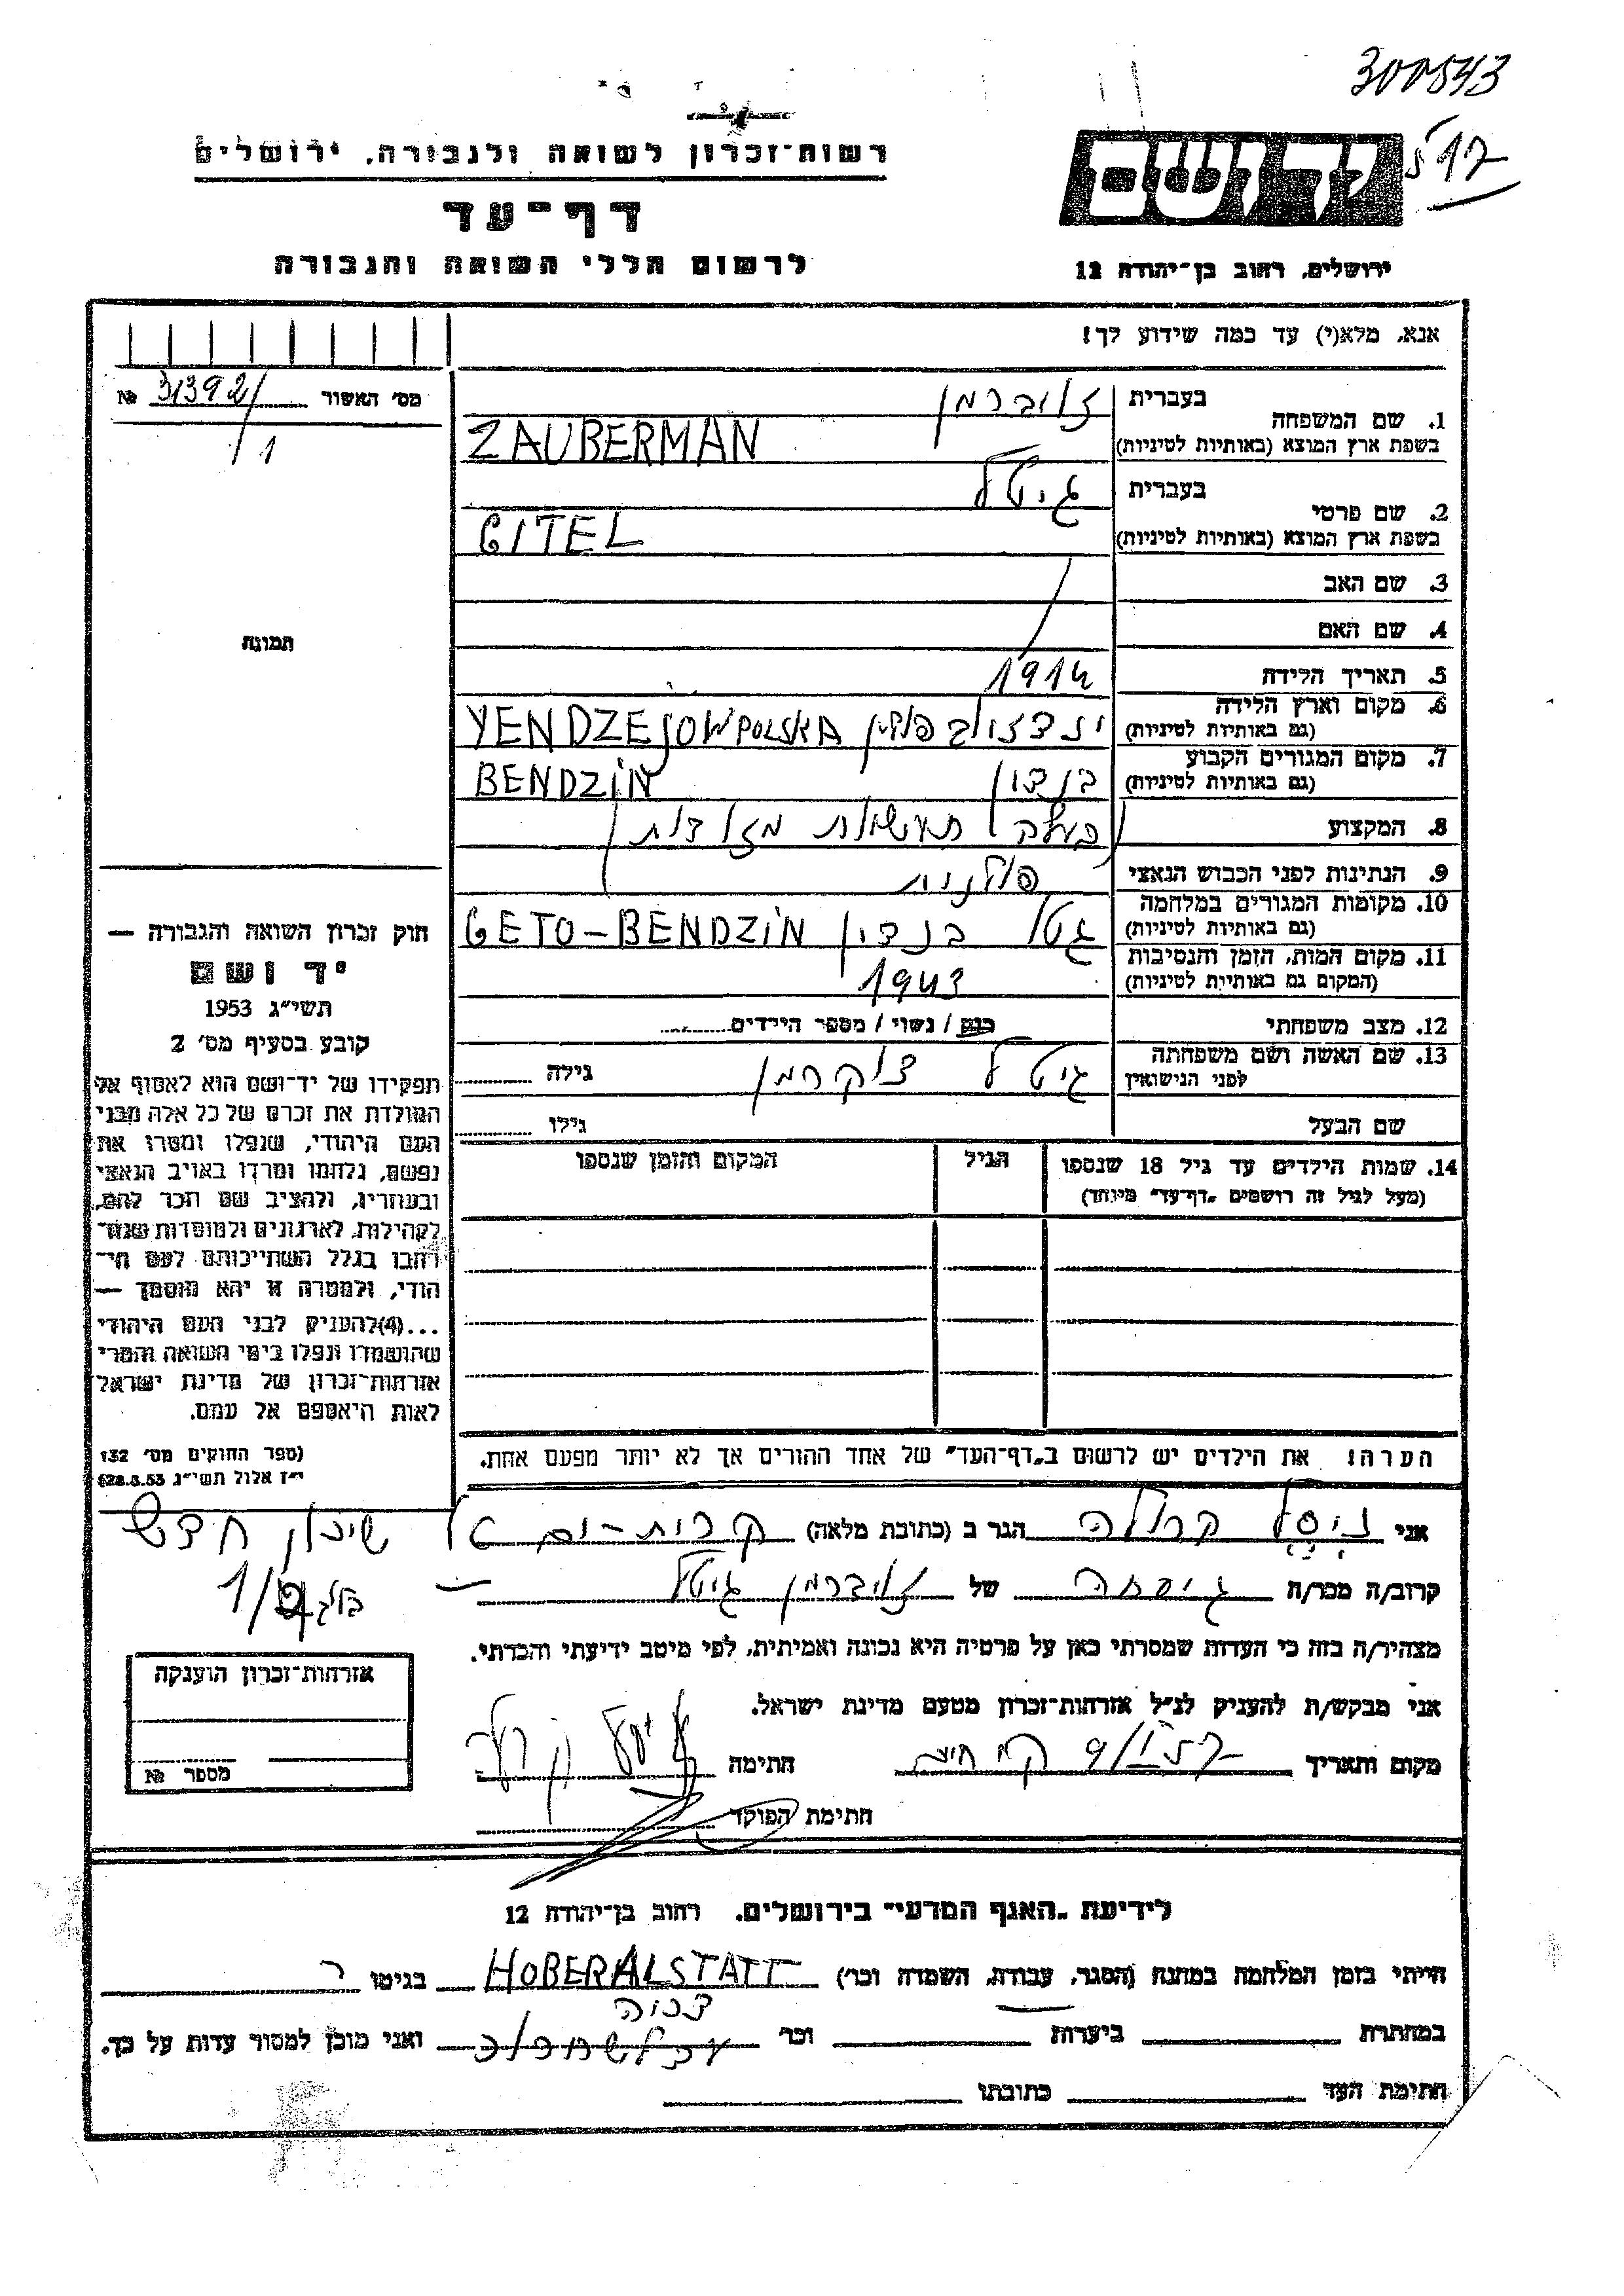 300543
517
רשות-זכרון לשואה ולגבורה, ירושלים
יד ושם
דף-עד
לרשום חללי השואה והגבורה
ירושלים, רחוב בן-יהודה 12
אנא, מלא(י) עד כמה שידוע לך!
מס' האשור 31392/ №
/1
1. שם המשפחה
בעברית זאוברמן
בשפת ארץ המוצא (באותיות לטיניות) ZAUBERMAN
2. שם פרטי
בעברית גיטל
בשפת ארץ המוצא (באותיות לטיניות) GITEL
3. שם האב
4. שם האם
5. תאריך הלידה 1914
6. מקום וארץ הלידה (גם באותיות לטיניות) פולין YENDZEJOW POLSKA
7. מקום המגורים הקבוע (גם באותיות לטיניות) בנדין BENDZIN
8. המקצוע (בעלה) תעשית מזודות
9. הנתינות לפני הכבוש הנאצי פולנית
10. מקומות המגורים במלחמה (גם באותיות לטיניות) גטו בנדין GETO-BENDZIN
11. מקום המות, הזמן והנסיבות (המקום גם באותיות לטיניות) 1943
12. מצב משפחתי רווק / נשוי / מספר הילדים
13. שם האשה ושם משפחתה לפני הנישואין גיטל צוקרמן גילה
שם הבעל גילו
14. שמות הילדים עד גיל 18 שנספו (מעל לגיל זה רושמים „דף-עד" מיוחד) הגיל המקום והזמן שנספו
הערה: את הילדים יש לרשום ב„דף-העד" של אחד ההורים אך לא יותר מפעם אחת.
תמונה
חוק זכרון השואה והגבורה —
יד ושם
תשי"ג 1953
קובע בסעיף מס' 2
תפקידו של יד-ושם הוא לאסוף אל
המולדת את זכרם של כל אלה מבני
העם היהודי, שנפלו ומסרו את
נפשם, נלחמו ומרדו באויב הנאצי
ובעוזריו, ולהציב שם וזכר להם,
לקהילות, לארגונים ולמוסדות שנח-
רבו בגלל השתייכותם לעם הי-
הודי, ולמטרה זו יהא מוסמך —
...(4) להעניק לבני העם היהודי
שהושמדו ונפלו בימי השואה והמרי
אזרחות-זכרון של מדינת ישראל
לאות היאספם אל עמם.
(ספר החוקים מס' 132
י"ז אלול תשי"ג 28.8.53)
אני ניסל קרולה הגר ב (כתובת מלאה) קרית-ים שיכון חדש
קרוב/ה מכר/ה גיסתה של זאוברמן גיטל
מצהיר/ה בזה כי העדות שמסרתי כאן על פרטיה היא נכונה ואמיתית, לפי מיטב ידיעתי והכרתי.
אני מבקש/ת להעניק לנ"ל אזרחות-זכרון מטעם מדינת ישראל.
מקום ותאריך חתימה
חתימת הפוקד
אזרחות-זכרון הוענקה
מספר №
לידיעת „האגף המדעי" בירושלים, רחוב בן-יהודה 12
הייתי בזמן המלחמה במחנה (הסגר, עבודה, השמדה וכו') HOBERALSTATT בגיטו
במחתרת ביערות וכו' ואני מוכן למסור עדות על כך.
חתימת העד כתובתו